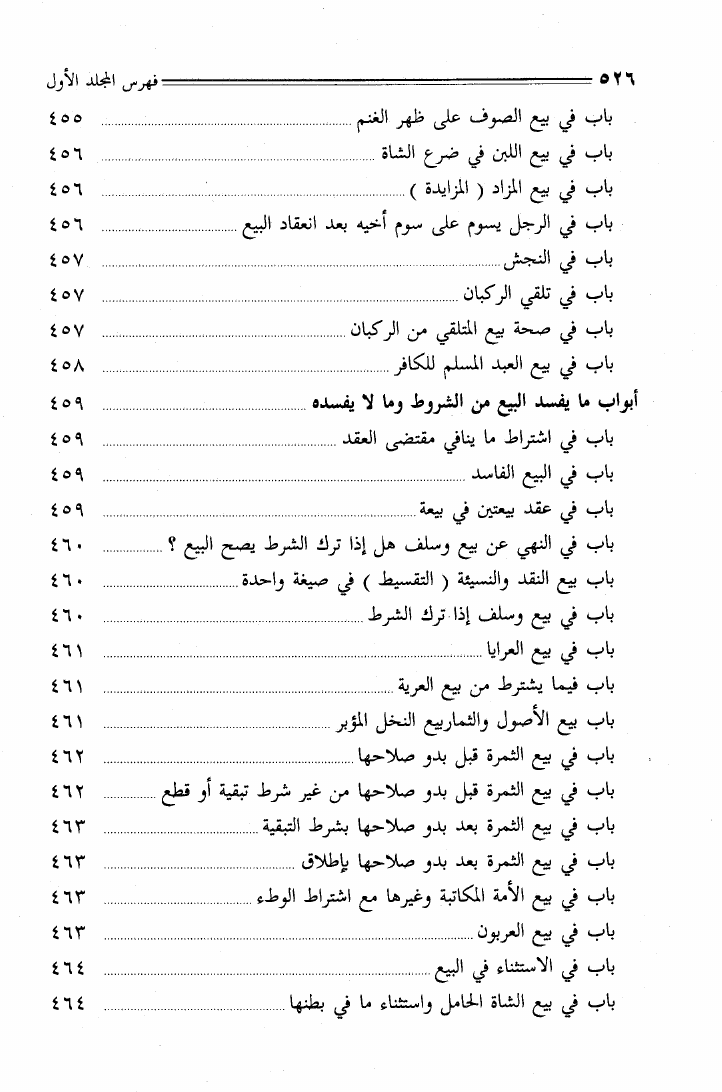 ٥٢٦ فهرس المجلد الأول
باب في بيع الصوف على ظهر الغنم ٤٥٥
باب في بيع اللبن في ضرع الشاة ٤٥٦
باب في بيع المزاد ( المزايدة ) ٤٥٦
باب في الرجل يسوم على سوم أخيه بعد انعقاد البيع ٤٥٦
باب في النجش ٤٥٧
باب في تلقي الركبان ٤٥٧
باب في صحة بيع المتلقي من الركبان ٤٥٧
باب في بيع العبد المسلم للكافر ٤٥٨
أبواب ما يفسد البيع من الشروط وما لا يفسده ٤٥٩
باب في اشتراط ما ينافي مقتضى العقد ٤٥٩
باب في البيع الفاسد ٤٥٩
باب في عقد بيعتين في بيعة ٤٥٩
باب في النهي عن بيع وسلف هل إذا ترك الشرط يصح البيع ؟ ٤٦٠
باب بيع النقد والنسيئة ( التقسيط ) في صيغة واحدة ٤٦٠
باب في بيع وسلف إذا ترك الشرط ٤٦٠
باب في بيع العرايا ٤٦١
باب فيما يشترط من بيع العرية ٤٦١
باب بيع الأصول والثماربيع النخل المؤبر ٤٦١
باب في بيع الثمرة قبل بدو صلاحها ٤٦٢
باب في بيع الثمرة قبل بدو صلاحها من غير شرط تبقية أو قطع ٤٦٢
باب في بيع الثمرة بعد بدو صلاحها بشرط التبقية ٤٦٣
باب في بيع الثمرة بعد بدو صلاحها بإطلاق ٤٦٣
باب في بيع الأمة المكاتبة وغيرها مع اشتراط الوطء ٤٦٣
باب في بيع العربون ٤٦٣
باب في الاستثناء في البيع ٤٦٤
باب في بيع الشاة الحامل واستثناء ما في بطنها ٤٦٤